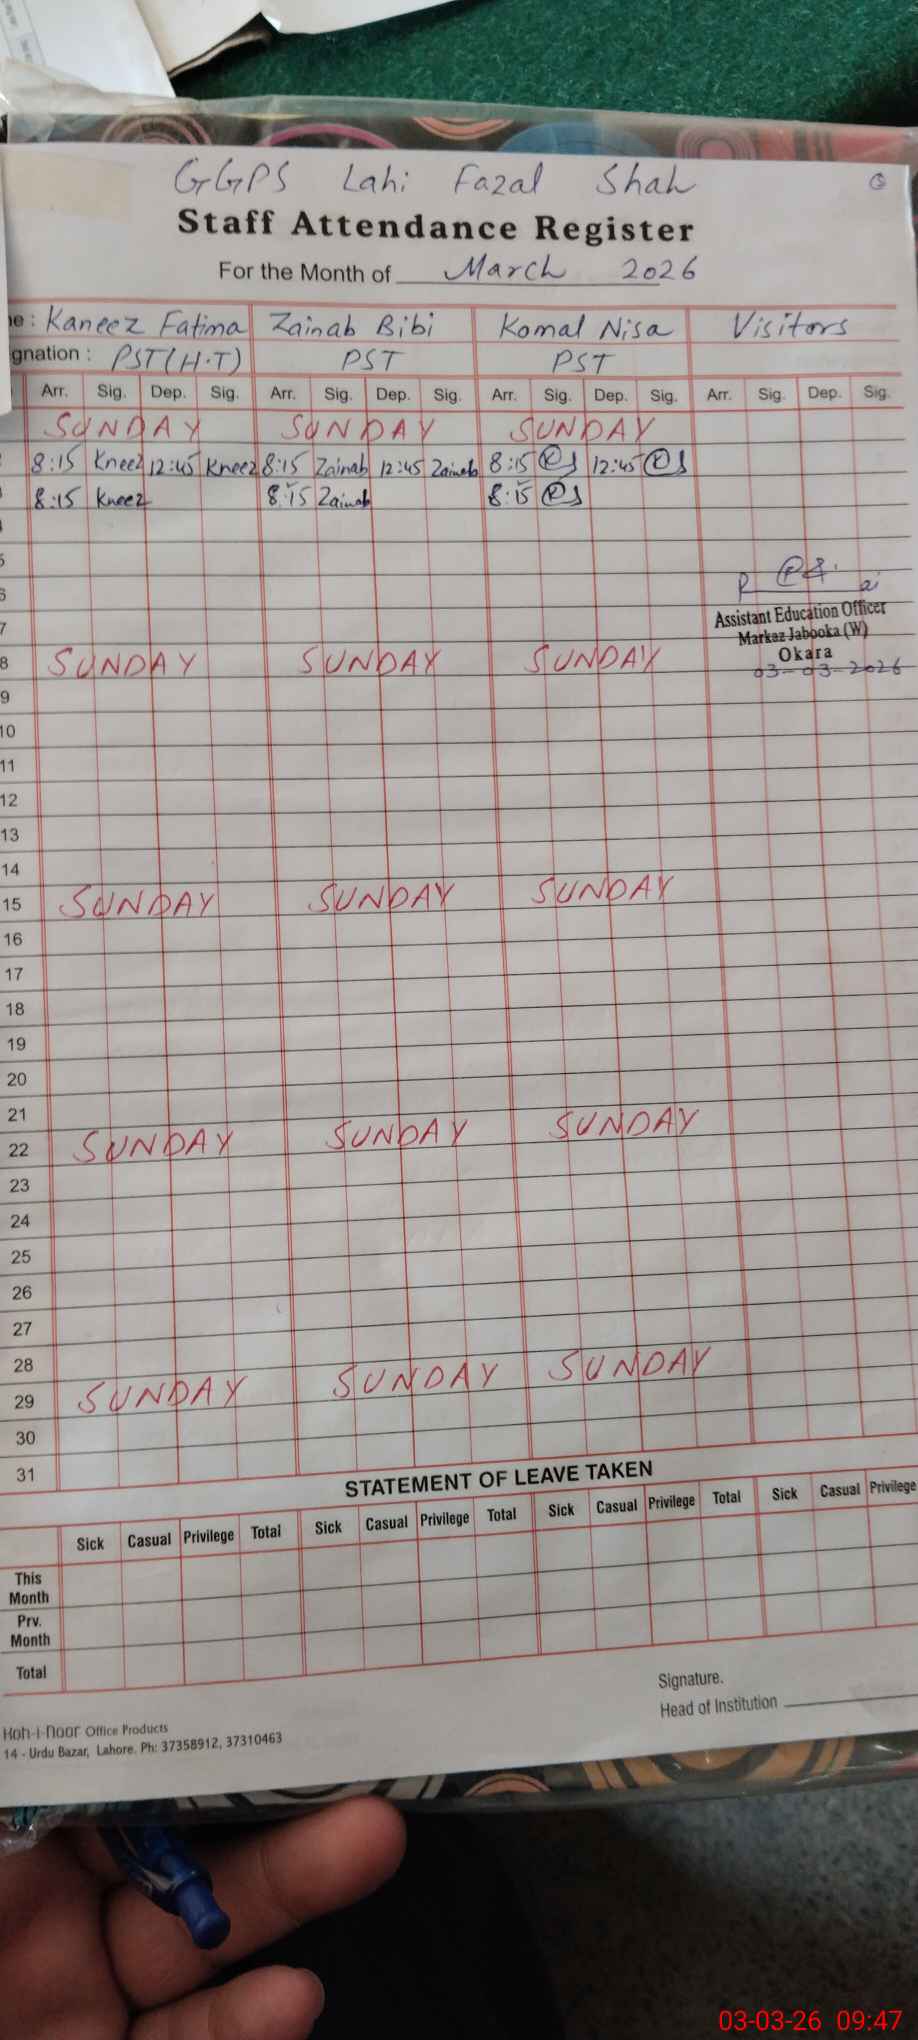 GGPS Lahi Fazal Shah
Staff Attendance Register
For the Month of March 2026
e : Kaneez Fatima Zainab Bibi Komal Nisa Visitors
gnation : PST(H.T) PST PST
Arr. Sig. Dep. Sig. Arr. Sig. Dep. Sig. Arr. Sig. Dep. Sig. Arr. Sig. Dep. Sig.
SUNDAY SUNDAY SUNDAY
8:15 Kneez 12:45 Kneez 8:15 Zainab 12:45 Zainab 8:15 12:45
8:15 Kneez 8:15 Zainab 8:15
5
6
Assistant Education Officer
7
Markaz Jabooka (W)
Okara
8 SUNDAY SUNDAY SUNDAY
03-03-2026
9
10
11
12
13
14
15 SUNDAY SUNDAY SUNDAY
16
17
18
19
20
21
22 SUNDAY SUNDAY SUNDAY
23
24
25
26
27
28
29 SUNDAY SUNDAY SUNDAY
30
31
STATEMENT OF LEAVE TAKEN
Sick Casual Privilege Total Sick Casual Privilege Total Sick Casual Privilege Total Sick Casual Privilege
This
Month
Prv.
Month
Total
Signature.
Head of Institution
Koh-i-noor Office Products
14 - Urdu Bazar, Lahore. Ph: 37358912, 37310463
03-03-26 09:47